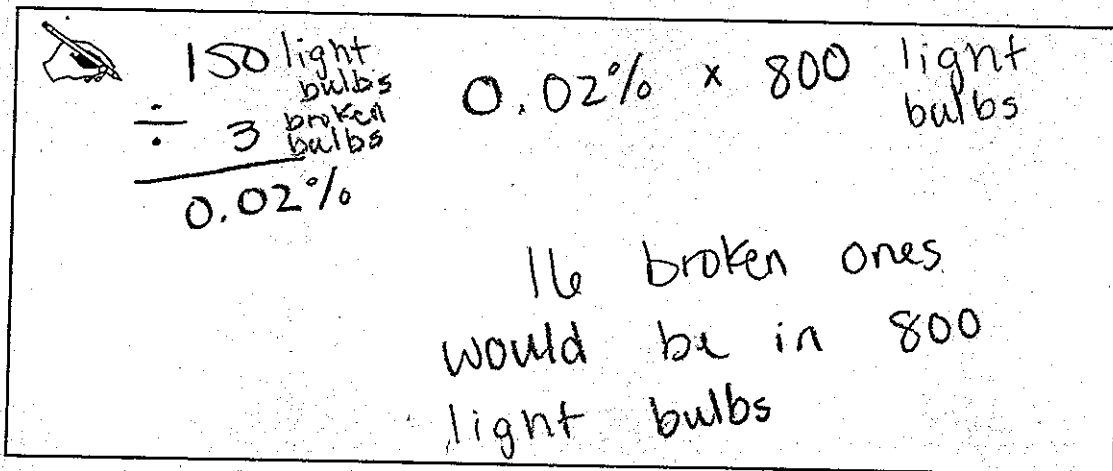 150 light bulbs
÷ 3 broken bulbs
0.02%
0.02% x 800 light bulbs
16 broken ones
would be in 800
light bulbs